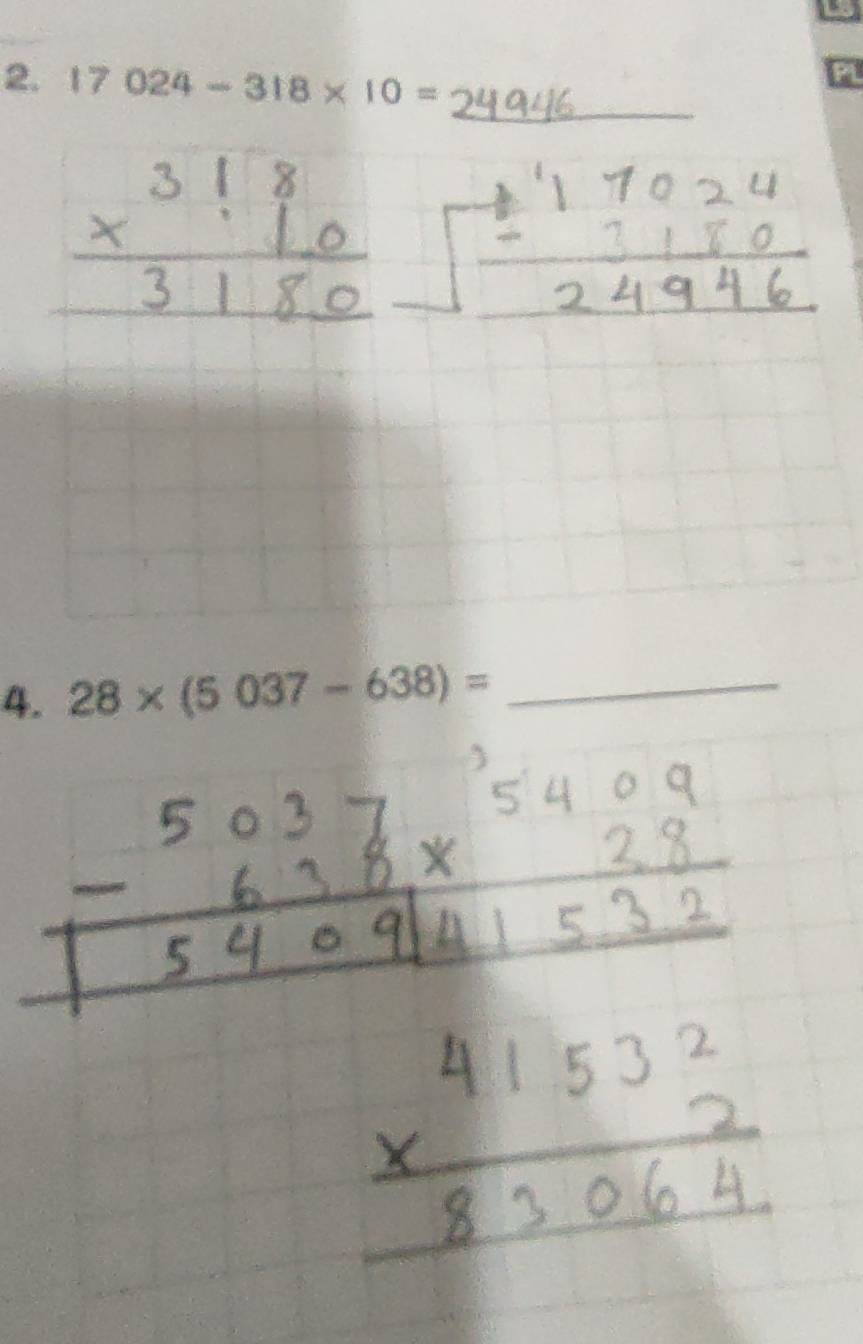 2. 17 024 – 318 × 10 = 24946
318
× 10
3180
17024
- 3180
24946
4. 28 × (5 037 – 638) =
5037
- 638
5409
5409
× 28
41532
41532
× 2
83064
PL